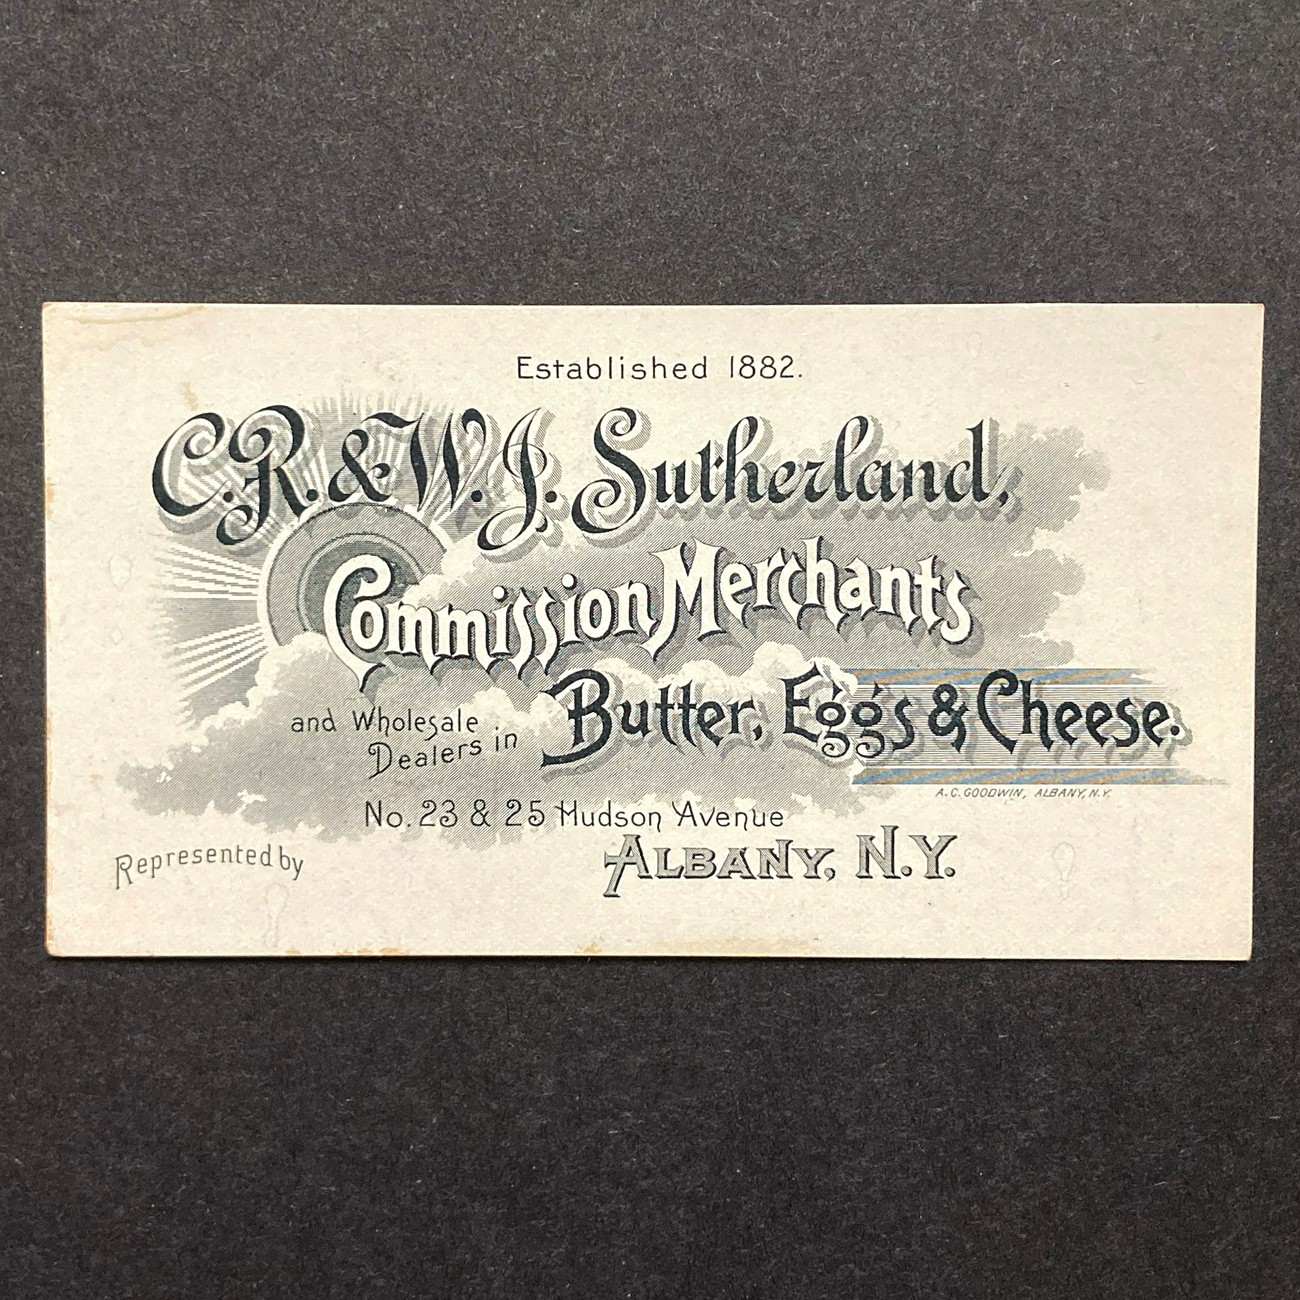 Established 1882.
C.R. & W.J. Sutherland,
Commission Merchants
and Wholesale
Dealers in
Butter, Eggs & Cheese.
A.C. GOODWIN, ALBANY, N.Y.
No. 23 & 25 Hudson Avenue
Represented by
ALBANY, N.Y.